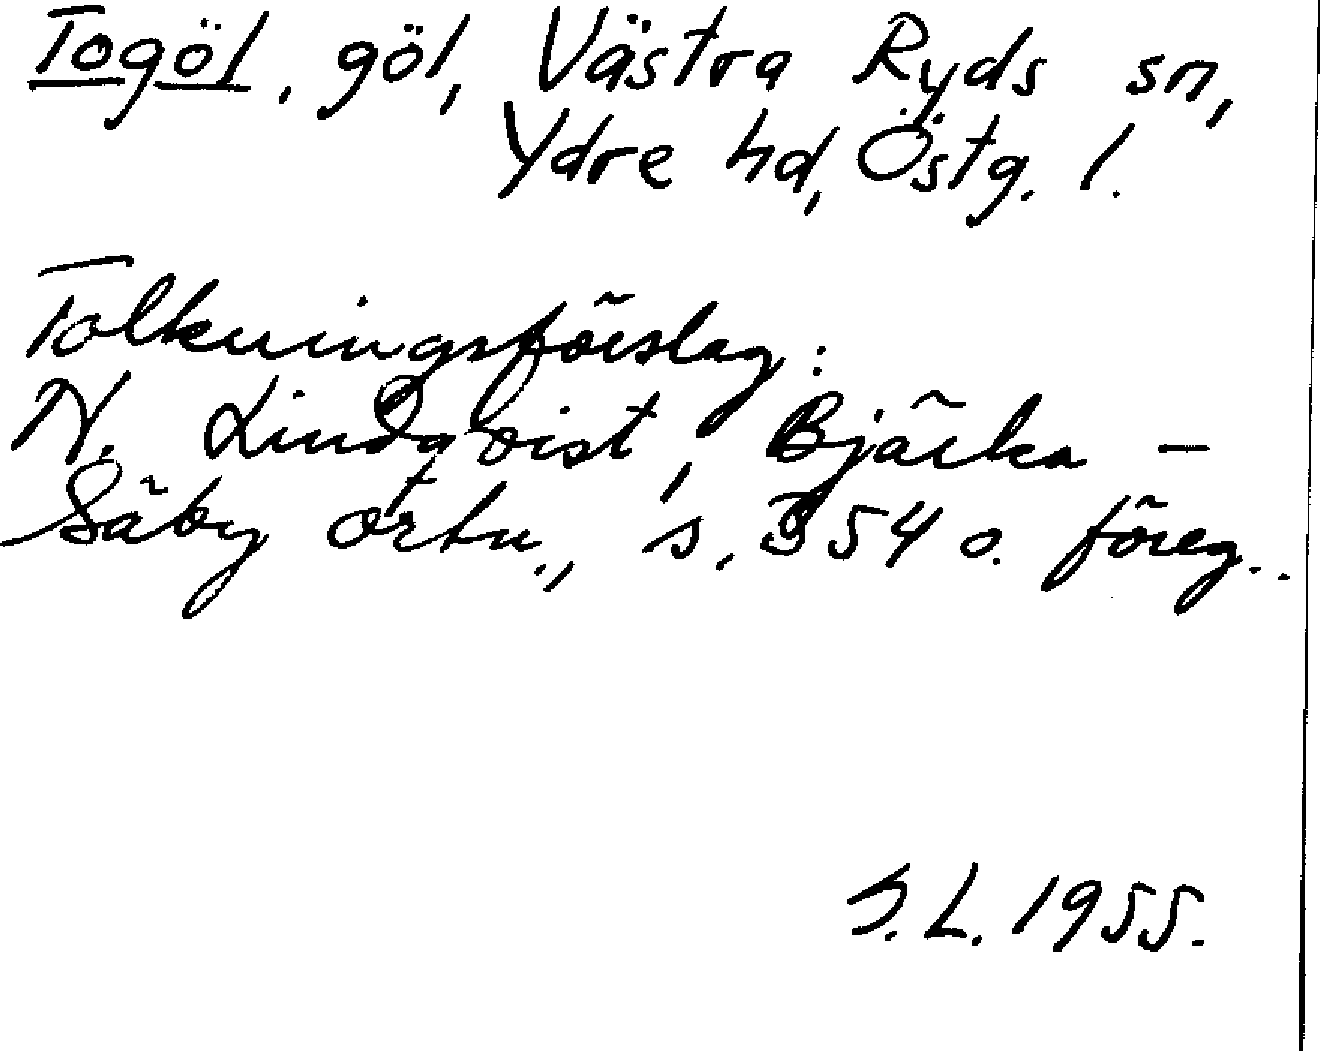 Togöl, göl, Västra Ryds sn,
Ydre hd, Östg. l.
Tolkningsförslag:
N. Lindqvist, Bjärka-
Säby ortn., s. 354 o. föreg..
S.L. 1955.